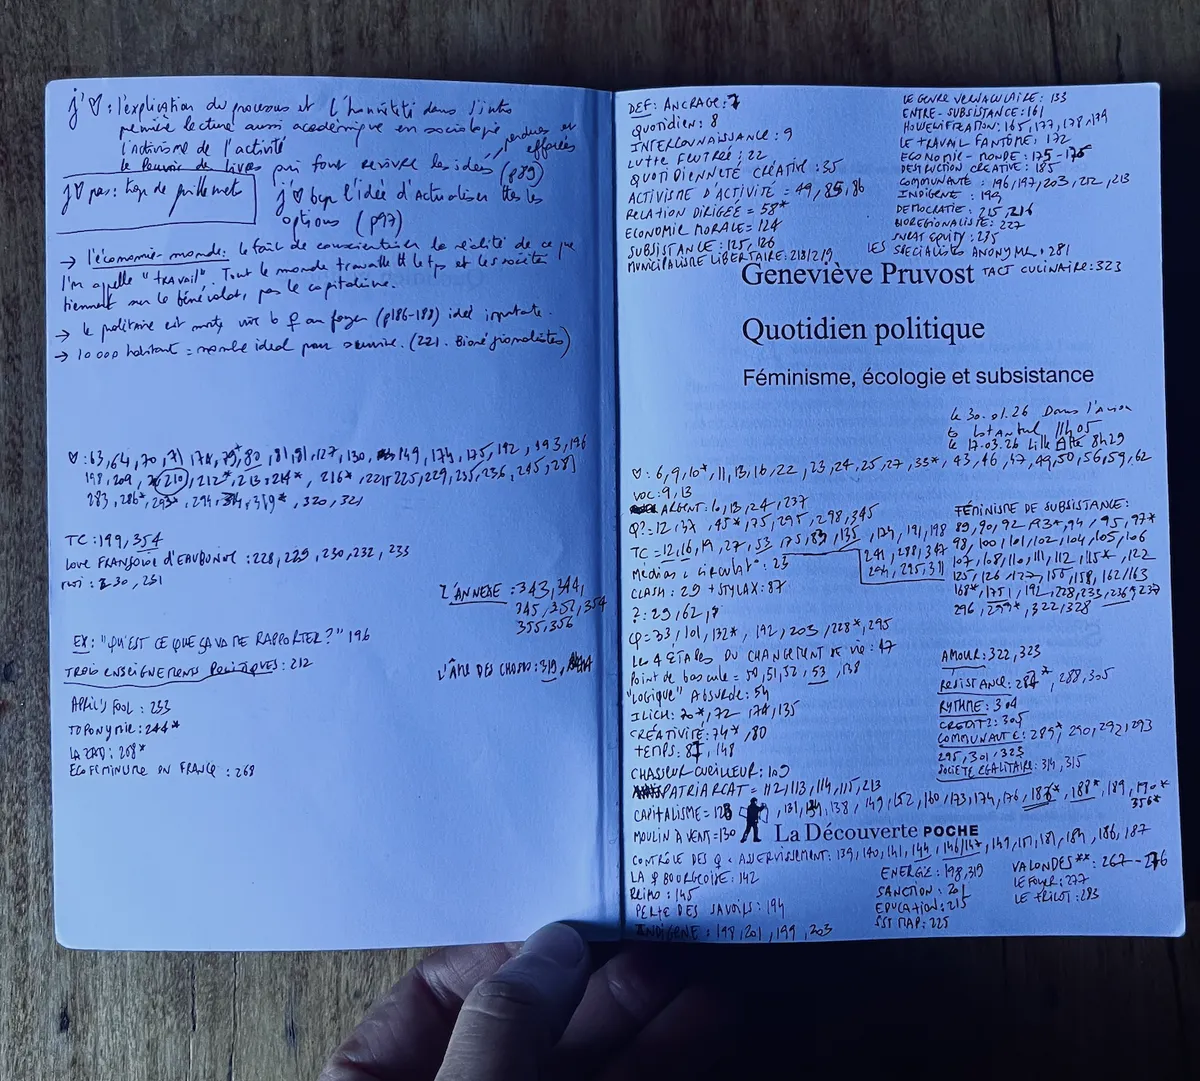 j'♡ : l'explication du processus et l'honnêteté dans l'intro
première lecture aussi académique en sociologie
l'activisme de l'activité
le pouvoir de livres qui font revivre les idées perdues et effacées (p89)
j♡ pas : trop de guillemets
j'♡ bcp l'idée d'actualiser ttes les
options (p97)
→ l'économie-monde : le fait de conscientiser la réalité de ce que
l'on appelle "travail". Tout le monde travaille tt le tps et les sociétés
tiennent sur le bénévolat, pas le capitalisme.
→ le militaire est monté vivre la ♀ au foyer (p186-188) idée importante.
→ 10 000 habitant = nombre idéal pour survivre. (221. Biorégionalistes)
♡ : 63, 64, 70, 71, 174, 79*, 80, 81, 81, 127, 130, 149, 174, 175, 192, 193, 196
198, 209, 210, 212*, 213, 214*, 216*, 221, 225, 229, 235, 236, 245, 281
283, 286*, 293*, 294, 314, 319*, 320, 321
TC : 199, 354
LOVE FRANÇOISE D'EAUBONNE : 228, 229, 230, 232, 233
MOI : 230, 231
L'ANNEXE : 343, 344,
345, 352, 354
355, 356
EX : "QU'EST CE QUE ÇA VA ME RAPPORTER ?" 196
TROIS ENSEIGNEMENTS POLITIQUES : 212
L'ÂME DES CHOSES : 319
APRIL'S FOOL : 233
TOPONYMIE : 244*
LA ZAD : 268*
ECOFEMINISME EN FRANCE : 268
DEF : ANCRAGE : 7
QUOTIDIEN : 8
INTERCONNAISSANCE : 9
LUTTE FEUTRÉE : 22
QUOTIDIENNETÉ CRÉATIVE : 35
ACTIVISME D'ACTIVITÉ = 49, 85, 86
RELATION DIRIGÉE = 58*
ECONOMIE MORALE = 124
SUBSISTANCE : 125, 126
MUNICIPALISME LIBERTAIRE : 218/219
LE GENRE VERNACULAIRE : 133
ENTRE-SUBSISTANCE : 161
HOUSEWIFIZATION : 165, 177, 178, 179
LE TRAVAIL FANTÔME : 172
ECONOMIE-MONDE : 175-176
DESTRUCTION CREATIVE : 185
COMMUNAUTÉ : 196, 197, 203, 212, 213
INDIGÈNE : 199
DEMOCRATIE : 215, 216
BIOREGIONALISTE : 227
SWEAT EQUITY : 235
LES SPECIALISTES ANONYMES : 281
TACT CULINAIRE : 323
Geneviève Pruvost
Quotidien politique
Féminisme, écologie et subsistance
le 30.01.26 Dans l'avion
Istanbul 11h05
le 17.03.26 Lille 8h29
♡ : 6, 9, 10*, 11, 13, 16, 22, 23, 24, 25, 27, 33*, 43, 46, 47, 49, 50, 56, 59, 62
VOC : 9, 13
ARGENT : 10, 13, 24, 237
Q? = 12, 37, 45*, 175, 295, 298, 345
TC = 12, 16, 19, 27, 53, 175, 89, 135, 134, 191, 198
241, 288, 347
294, 295, 311
MÉDIAS & CIRCULAT° : 23
CLASH : 29 + STYLAX : 87
? : 29, 62
CP = 33, 101, 132*, 192, 203, 228*, 295
LES 4 ÉTAPES DU CHANGEMENT DE VIE : 47
POINT DE BASCULE = 50, 51, 52, 53, 138
"LOGIQUE" ABSURDE : 54
ILLICH : 70*, 72, 174, 135
CRÉATIVITÉ : 74*, 80
TEMPS : 87, 148
CHASSEUR CUEILLEUR : 109
PATRIARCAT = 112, 113, 114, 115, 213
CAPITALISME = 128, 131, 134, 138, 149, 152, 160, 173, 174, 176, 186*, 188*, 189, 190*
356*
MOULIN À VENT = 130
CONTRÔLE DES ♀ & ASSERVISSEMENT : 139, 140, 141, 144, 146/147, 149, 151, 181, 184, 186, 187
LA ♀ BOURGEOISE : 142
REIMS : 145
PERTE DES SAVOIRS : 194
INDIGÈNE : 198, 201, 199, 203
FÉMINISME DE SUBSISTANCE :
89, 90, 92, 93*, 94, 95, 97*
98, 100, 101, 102, 104, 105, 106
107, 108, 110, 111, 112, 115*, 122
125, 126, 127, 156, 158, 162/163
168*, 175, 192, 228, 233, 236, 237
296, 299*, 322, 328
AMOUR : 322, 323
RESISTANCE : 284*, 288, 305
RYTHME : 304
CREDIT? : 305
COMMUNAUTÉ : 289*, 290, 292, 293
295, 301, 323
SOCIETÉ EGALITAIRE : 314, 315
La Découverte POCHE
ENERGIE : 198, 319
SANCTION : 201
EDUCATION : 215
SST MAP : 225
VALONDES** : 267-276
LE FOYER : 277
LE TRICOT : 283